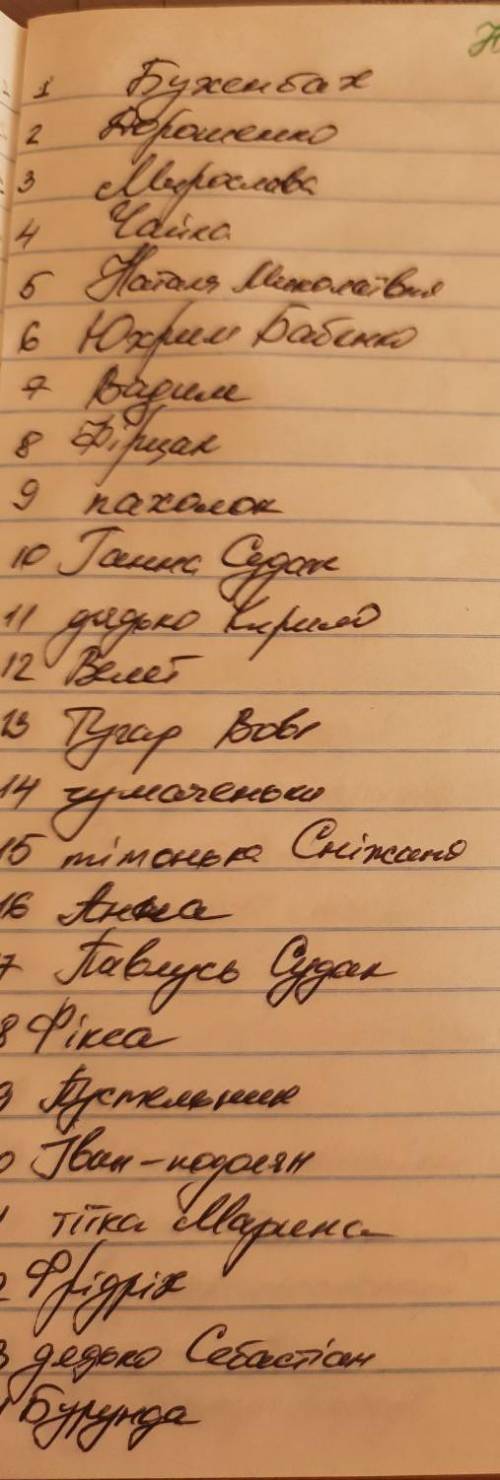 1 Бухенбах
2 Порошенко
3 Мирослава
4 Чайка
5 Наталя Миколаївня
6 Юхрим Бабенко
7 Вадим
8 Фірцак
9 пахолок
10 Ганна Судак
11 дядько Кирило
12 Велет
13 Тугар Вовк
14 чумаченьки
15 тітонька Сніжана
16 Анна
7 Павлусь Судак
8 Фікса
9 Пустельник
0 Іван-подолян
тітка Марина
2 Фрідріх
3 дядько Себастіан
Бурунда